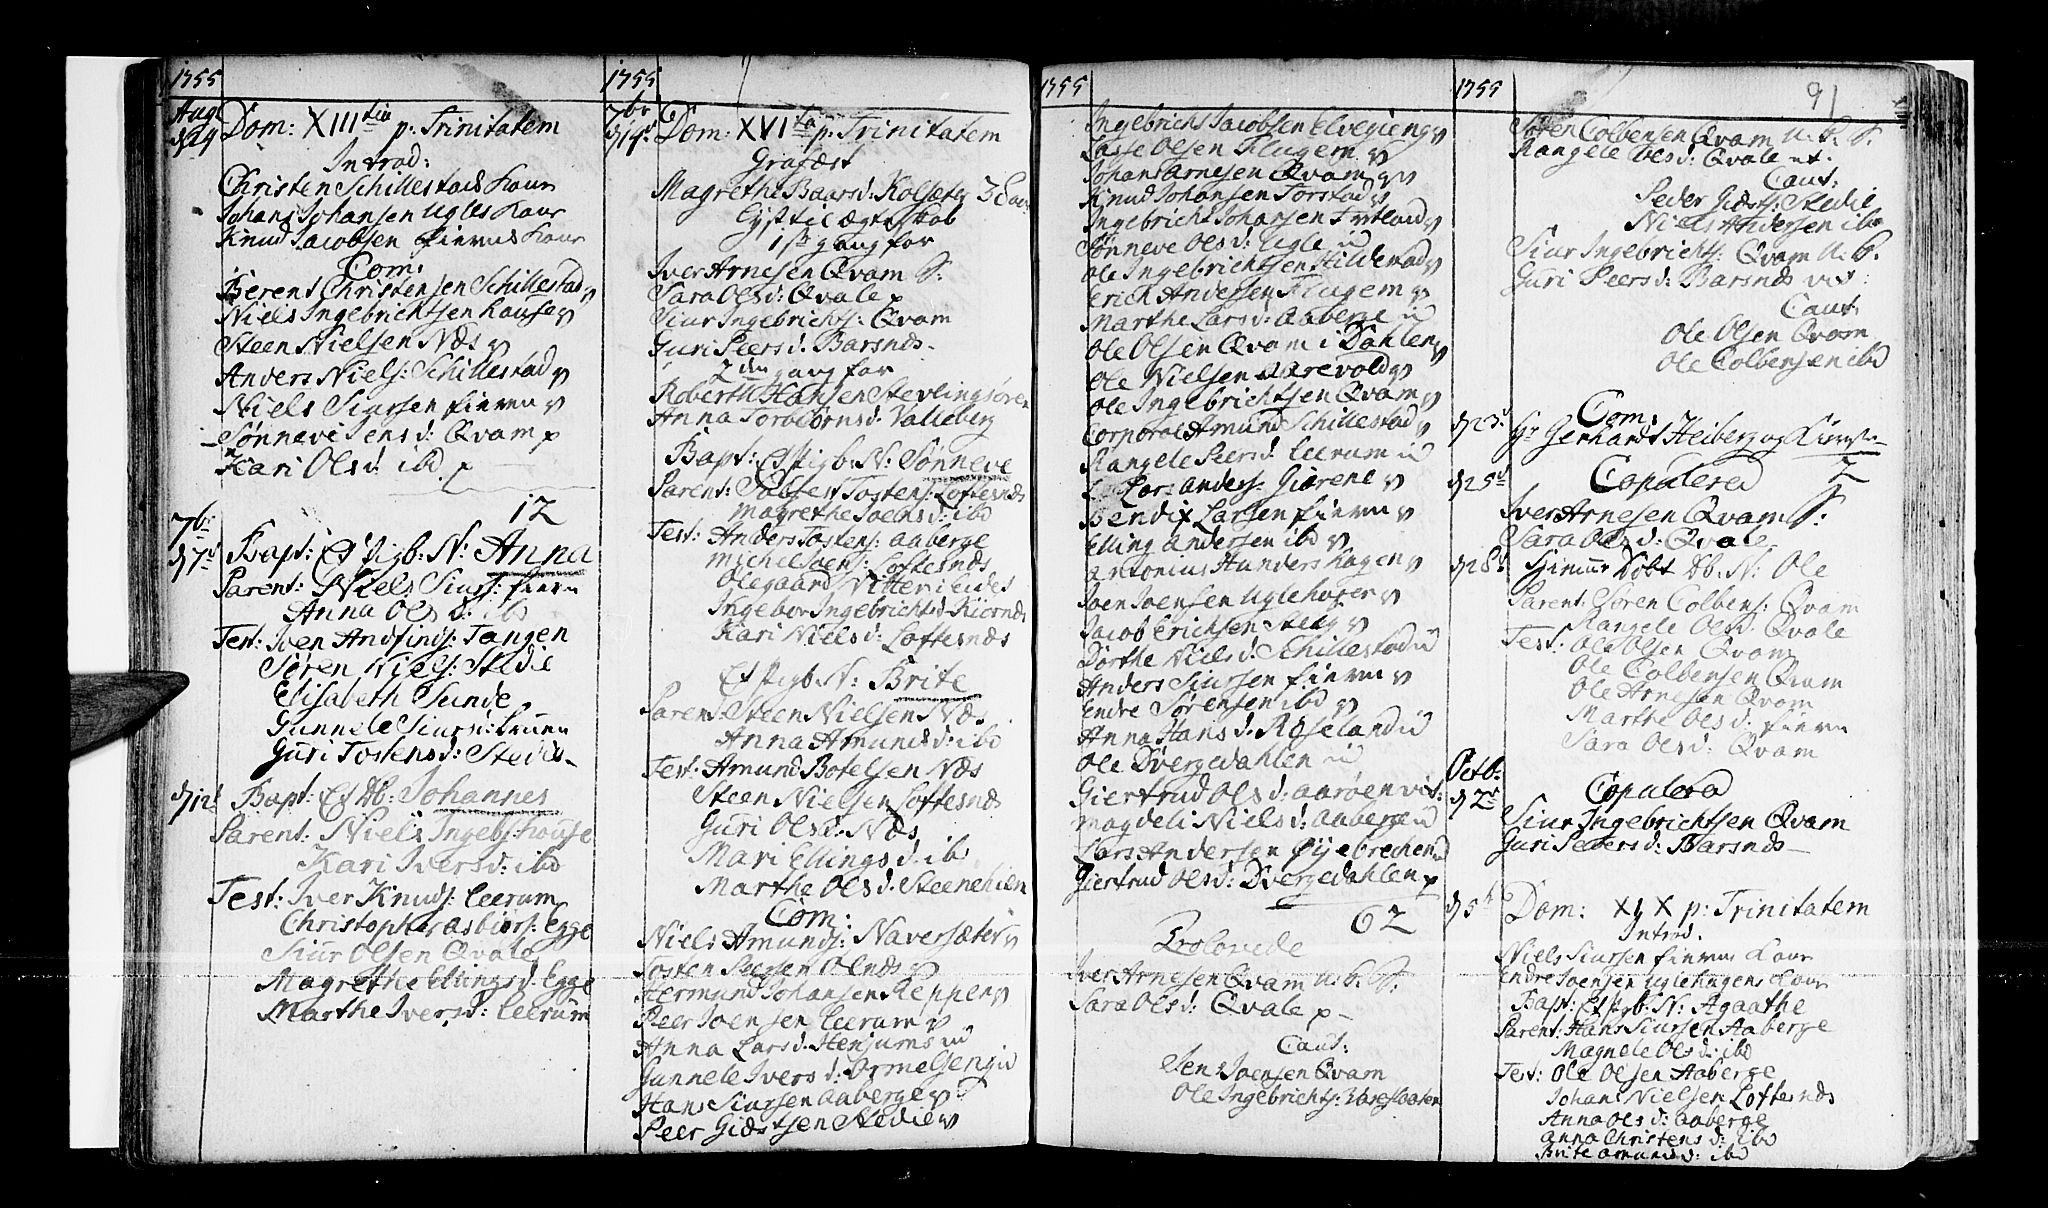 1755
Aug:
d 24
Dom: XIII tia p: Trinitatem
Introd:
Christen Schillestads Kone
Johans Johansen Ugles Kone
Knud Jacobsen fierns Kone
Com:
Berent Christensen Schillestad
Niels Ingebrichtsen house
Steen Nielsen Næs
Anders Niels: Schillestad
Niels Siursen fiern
Sønneve Jensd: Qvam p
Kari Olsd: ibd p
12
7br
d 7d
Bapt: Et Pigb: N: Anna
Parent: Niels Siurs: fiern
Anna Olsd: ibd
Test: Iven Andfinds: Tangen
Søren Niels: Stedie
Elisabeth Sunde
Gunnele Siursd:
Guri Tostensd: Stedie
d 12t
Bapt: Et Db: Johannes
Parent: Niels Ingebs: house
Kari Iversd: ibd
Test: Iver Knuds: Leerum
Christopher Asbiørs: Egge
Siur Olsen Qvale
Magrethe Ellingsd: Egge
Marthe Iversd: Leerum
1755
7br
d 14d
Dom: XVI ta p: Trinitatem
Grafæst
Magrethe Baarsd: Kolsæter
Lyst til Ægteskab
1ste gang for
Iver Arnesen Qvam S:
Sara Olsd: Qvale p
Siur Ingebrichts: Qvam
Guri Peersd: Barsnæs
2den gang for
Roberth Hansen Stevlingsøren
Anna Torbiørnsd: Valleberg
Bapt: Et Pigb: N: Sønneve
Parent: Tosten: Loftesnæs
Magrethe Joensd: ibd
Test: Anders Tostens: Aaberge
Michel Joens: Loftesnæs
Olegaard Vitter i Eidet
Ingebor Ingebrichtsd: Kiørnæs
Kari Nielsd: Loftesnæs
Et Pigb: N: Brite
Parent: Steen Nielsen Næs
Anna Amundsd: ibd
Test: Amund Botelsen Næs
Steen Nielsen Loftesnæs
Guri Olsd: Næs
Mari Ellingsd: ibd
Marthe Olsd: Steenehien
Com:
Niels Amunds: Naversæter
Tosten Peersen Ølnæs
Hermund Johansen Reppen
Peer Joensen Leerum
Anna Larsd: Henjums
Gunnele Iversd: Ormelgengid
Hans Siursen Aaberge
Peer Giæstsen Stedie
1755
Ingebricht Jacobsen Elvegieng
Lasse Olsen Flugem
Johan Arnesen Qvam
Knud Johansen Torstad
Ingebricht Johansen Frtland
Sønneve Olsd: Ugle
Ole Ingebrichtsen Hildestad
Erich Andersen Flugem
Marthe Larsd: Aaberge
Ole Olsen Qvam i Dahlen
Ole Nielsen Aarevold
Ole Ingebrichtsen Qvam
Corporal Amund Schillestad
Rangele Peersd: Leerum
Lars Anders: Giørene
Bendix Larsen fiern
Elling Andersen ibd
Antonius Hundershagen
Joen Joensen Uglehagen
Jacob Erichsen Steig
Dorthe Nielsd: Schillestad
Anders Siursen fiern
Endre Sørensen ibd
Anna Hansd: Røseland
Ole Dvergedahlen
Giertrud Olsd: Aarøen
Magdeli Nielsd: Aaberge
Lars Andersen Øyebrechen
Giertrud Olsd: Dvergedahlen p
62
Trolovede
Iver Arnesen Qvam u. k. S.
Sara Olsd: Qvale p
Caut:
Jens Joensen Qvam
Ole Ingebrichts:
1755
91
Søren Colbensen Qvam u. k. S.
Rangele Olsd: Qvale ut.
Caut:
Peder Giæsts: Stedie
Niels Andersen ibd
Siur Ingebrichts: Qvam u. k.
Guri Peersd: Barsnæs
Caut:
Ole Olsen Qvam
Ole Colbensen ibd
d 23d
Com:
Hr Gerhardt Heiberg og
2
d 25d
Copulered
Iver Arnesen Qvam S:
Sara Olsd: Qvale
d 28d
Hjemme Døbt Db. N: Ole
Parent: Søren Colbens: Qvam
Rangele Olsd: Qvale
Test: Ole Olsen Qvam
Ole Colbensen Qvam
Ole Arnesen Qvam
Marthe Olsd: fiern
Sara Olsd: Qvam
Octb:
d 2d
Copulered
Siur Ingebrichtsen Qvam
Guri Peersd: Barsnæs
d 5t
Dom: XIX p: Trinitatem
Introd.
Niels Siursen fierns Kone
Endre Joensen Uglehagens Kone
Bapt: Et Pigb: N: Agaathe
Parent: Hans Siursen Aaberge
Magnele Olsd: ibd
Test: Ole Olsen Aaberge
Johans Nielsen Loftesnæs
Anna Olsd: Aaberge
Anna Christensd: ibd
Brite Amundsd: ibd